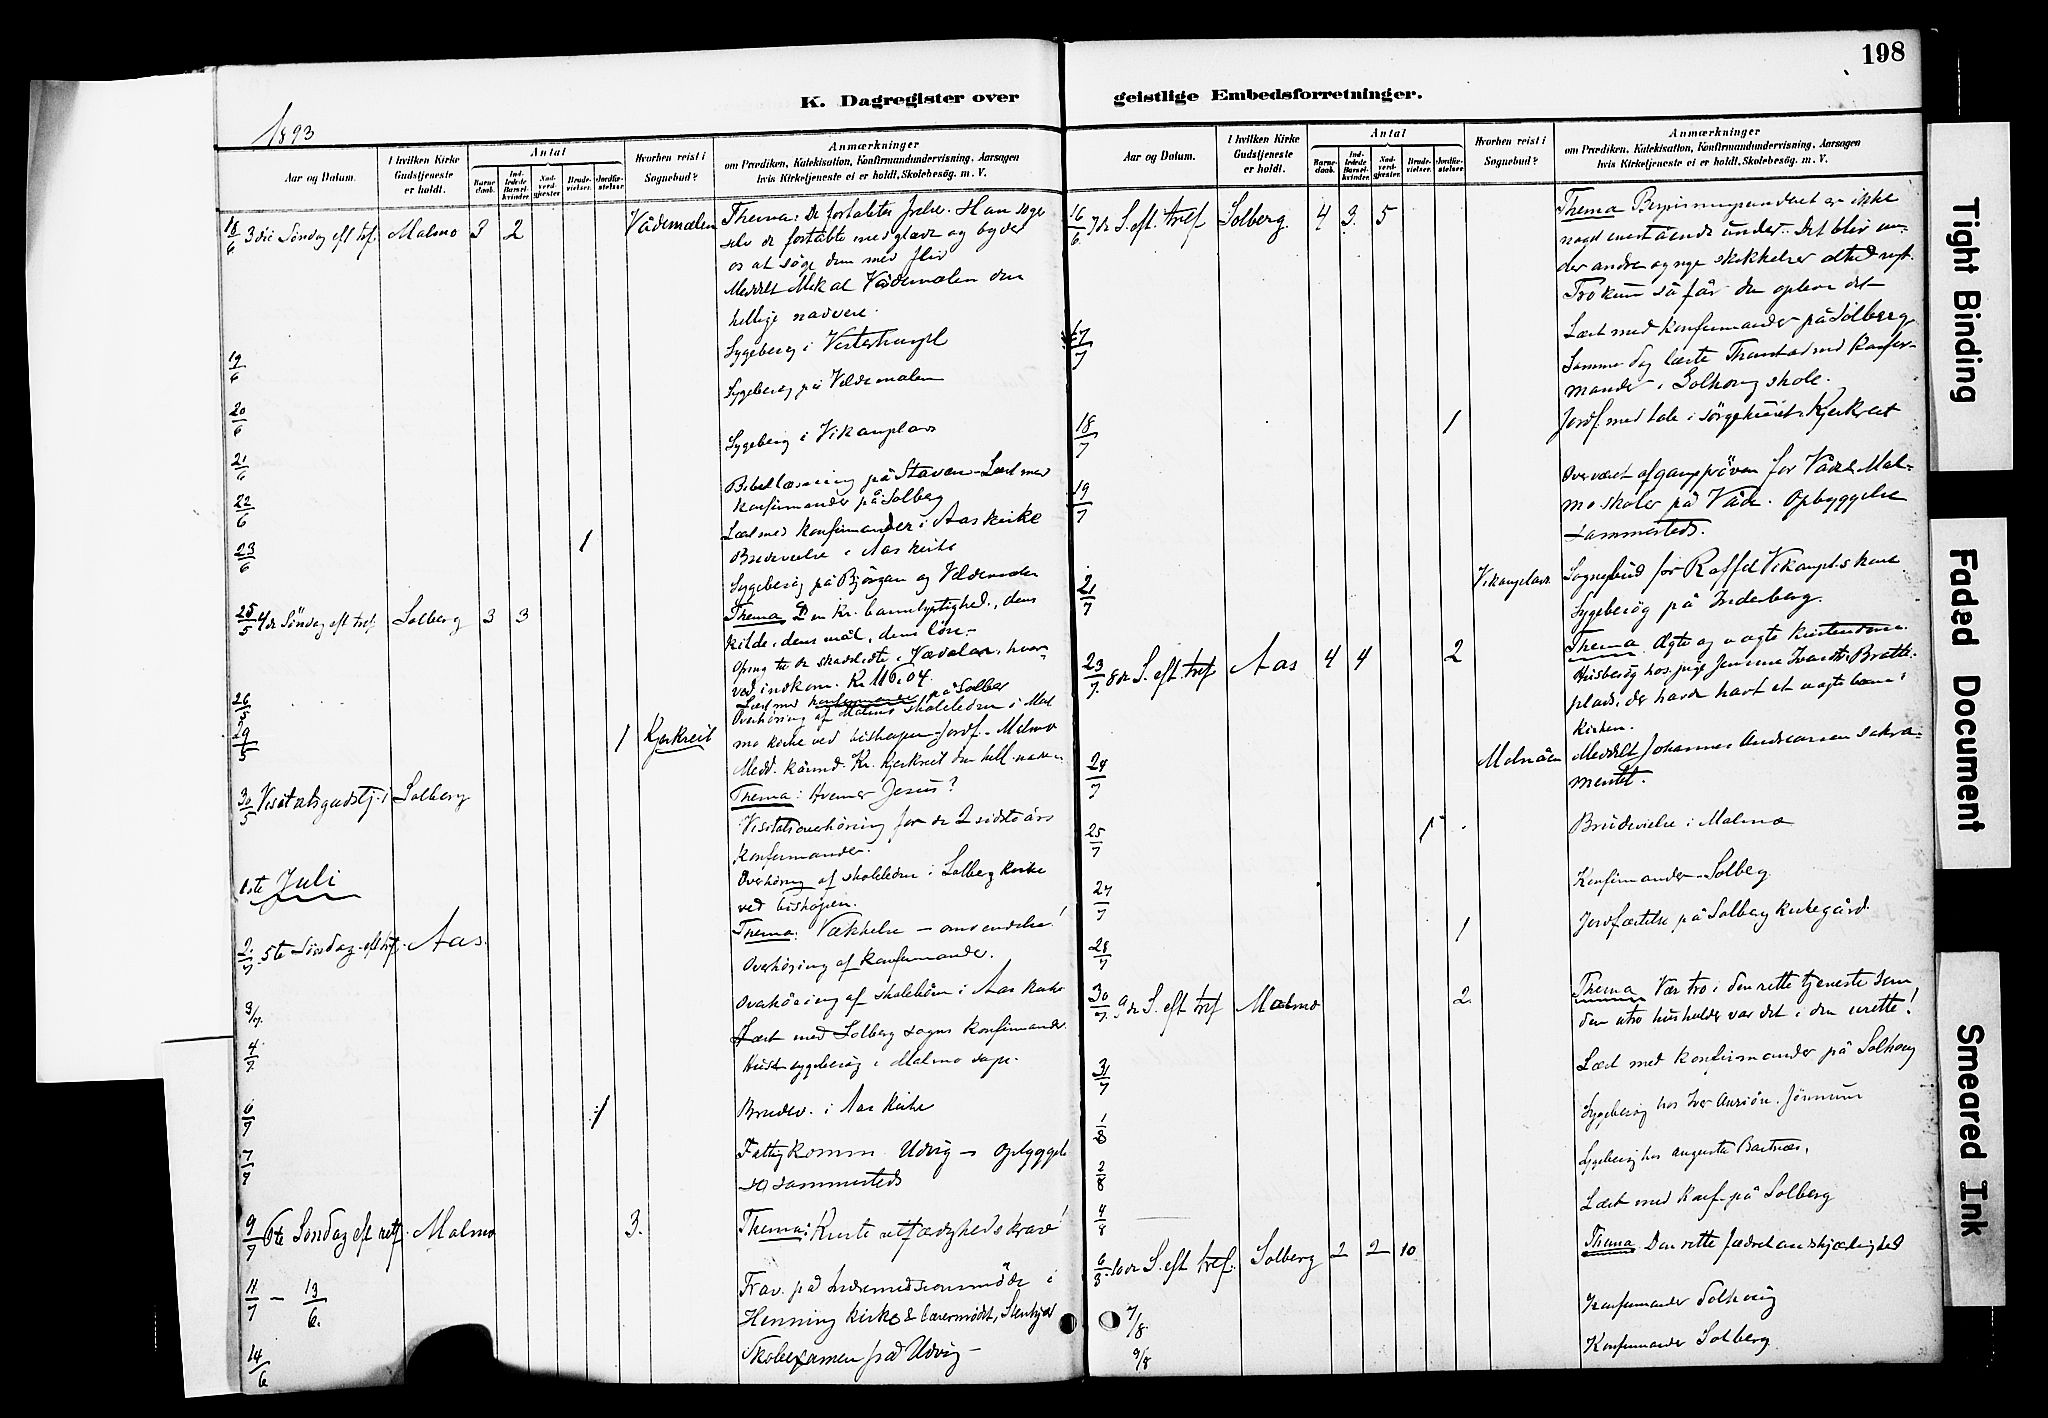 198
K. Dagregister over
geistlige Embedsforretninger.
1893
Aar og Datum.
I hvilken Kirke Gudstjeneste er holdt.
Antal
Barnedaab.
Indledede Barselkvinder.
Nadverdgjester.
Brudevielser.
Jordfæstelser.
Hvorhen reist i Sognebud?
Anmærkninger
om Prædiken, Katekisation, Konfirmandundervisning, Aarsagen
hvis Kirketjeneste ei er holdt, Skolebesög. m. V.
18/6 3die Söndag eft tref. Malmo 3 2 Vådemælen Thema: De fortabtes frelse. Han söger
selv de fortabte med glæde og byder
os at söge dem med flid
Meddelt Mekal Vådemælen den
hellige nadvere.
19/6 Sygebesög i
Sygebesög på
20/6 Sygebesög i Vikanplads
21/6 Bibellæsning på Stavan - Læst med
22/6 konfirmander på Solberg
Læst med konfirmander i Aas kirke
23/6 1 Brudevielse i Aas kirke
Sygebesög på Bjørgan og
25/5 4de Söndag eft tref. Solberg 3 3 Thema Den kr. barmhjertighed, dens
kilde, dens mål, dens lön.-
Ofring til de skadelidte i Værdalen, hvor-
ved indkom. Kr 116.04.
26/5 Læst med konfirmander på Solberg
29/5 1 Kjerkreit Overhöring af Malmo skolebörn i Mal
mo kirke ved biskopen. Jordf. - Malmo
Medd. Kr. Kjerkreit den hell. nadver
30/5 Visitatsgudstj. i Solberg Thema: Hvem er Jesus?
Visitatsoverhöring for de 2 sidste års
konfirmander.
1ste Juli Overhöring af skolebörn i Solberg kirke
ved biskopen.
2/7 5te Söndag eft tref. Aas. Thema: Vækkelse - omvendelse!
Overhöring af konfirmander.
3/7. Overhöring af skolebörn i Aas kirke
4/7 Læst med Solberg sogns konfirmander
Hus & sygebesög i Malmo sogn.
6/7 1 Brudev. i Aas kirke
7/7 Fattigkomm. Udvig - opbyggel
se sammesteds
9/7 6te Söndag eft tref. Malmo 3. Thema: Kristi retfærdighedskrav!
11/7 - 13/6. Frav. på Indremissionsmöde i
Henning kirke & lærermödet, Stenkjær
14/6 Skolexamen på Udvig -
Aar og Datum.
I hvilken Kirke Gudstjeneste er holdt.
Antal
Barnedaab.
Indledede Barselkvinder.
Nadverdgjester.
Brudevielser.
Jordfæstelser.
Hvorhen reist i Sognebud?
Anmærkninger
om Prædiken, Katekisation, Konfirmandundervisning, Aarsagen
hvis Kirketjeneste ei er holdt, Skolebesög. m. V.
16/6 7de S. eft. tref Solberg. 4 3. 5 Thema Bespisningsunderet er ikke
noget enestående under. Det blir un-
der andre og nye skikkelser altid nyt.
Tro kun så får du opleve det
17/7 Læst med konfirmander på Solberg
Samme dag læste med konfir-
mander i Solhoug skole.
18/7 1 Jordf. med tale i sörgehuset Kjerkreit
19/7 Overværet afgangspröven for Våde & Mal-
mo skoler på Våde. Opbyggelse
sammesteds.
21/7 Vikanplads Sognebud for Vikanpl.s kone
Sygebesög på Inderberg.
23/7. 8de S. eft tref Aas 4 4 2 Thema Ægte og uægte kristendom.
Husbesög hos pige
plads, der havde havt et uægte barn i
kirken.
24/7 Meddelt Johannes Andreassen sakra-
mentet.
25/7 1 Brudevielse i Malmo
27/7 Konfirmander - Solberg
28/7 1 Jordfæstelse på Solberg kirkegård.
30/7. 9de S. eft tref Malmo 2. Thema Vær tro i den rette tjeneste som
den utro husholder var det i den urette!
31/7 Læst med konfirmander på Solhoug
1/8 Sygebesög hos Iver
2/8 Sygebesög hos Augusta Bartnæs.
4/8 Læst med konf. på Solberg
6/8 10de S. eft tref. Solberg 2 2 10 Thema Den rette fædrelandskjærlighed
7/8. Konfirmander Solhoug
9/8 Konfirmander Solberg
Tight Binding
Faded Document
Smeared Ink